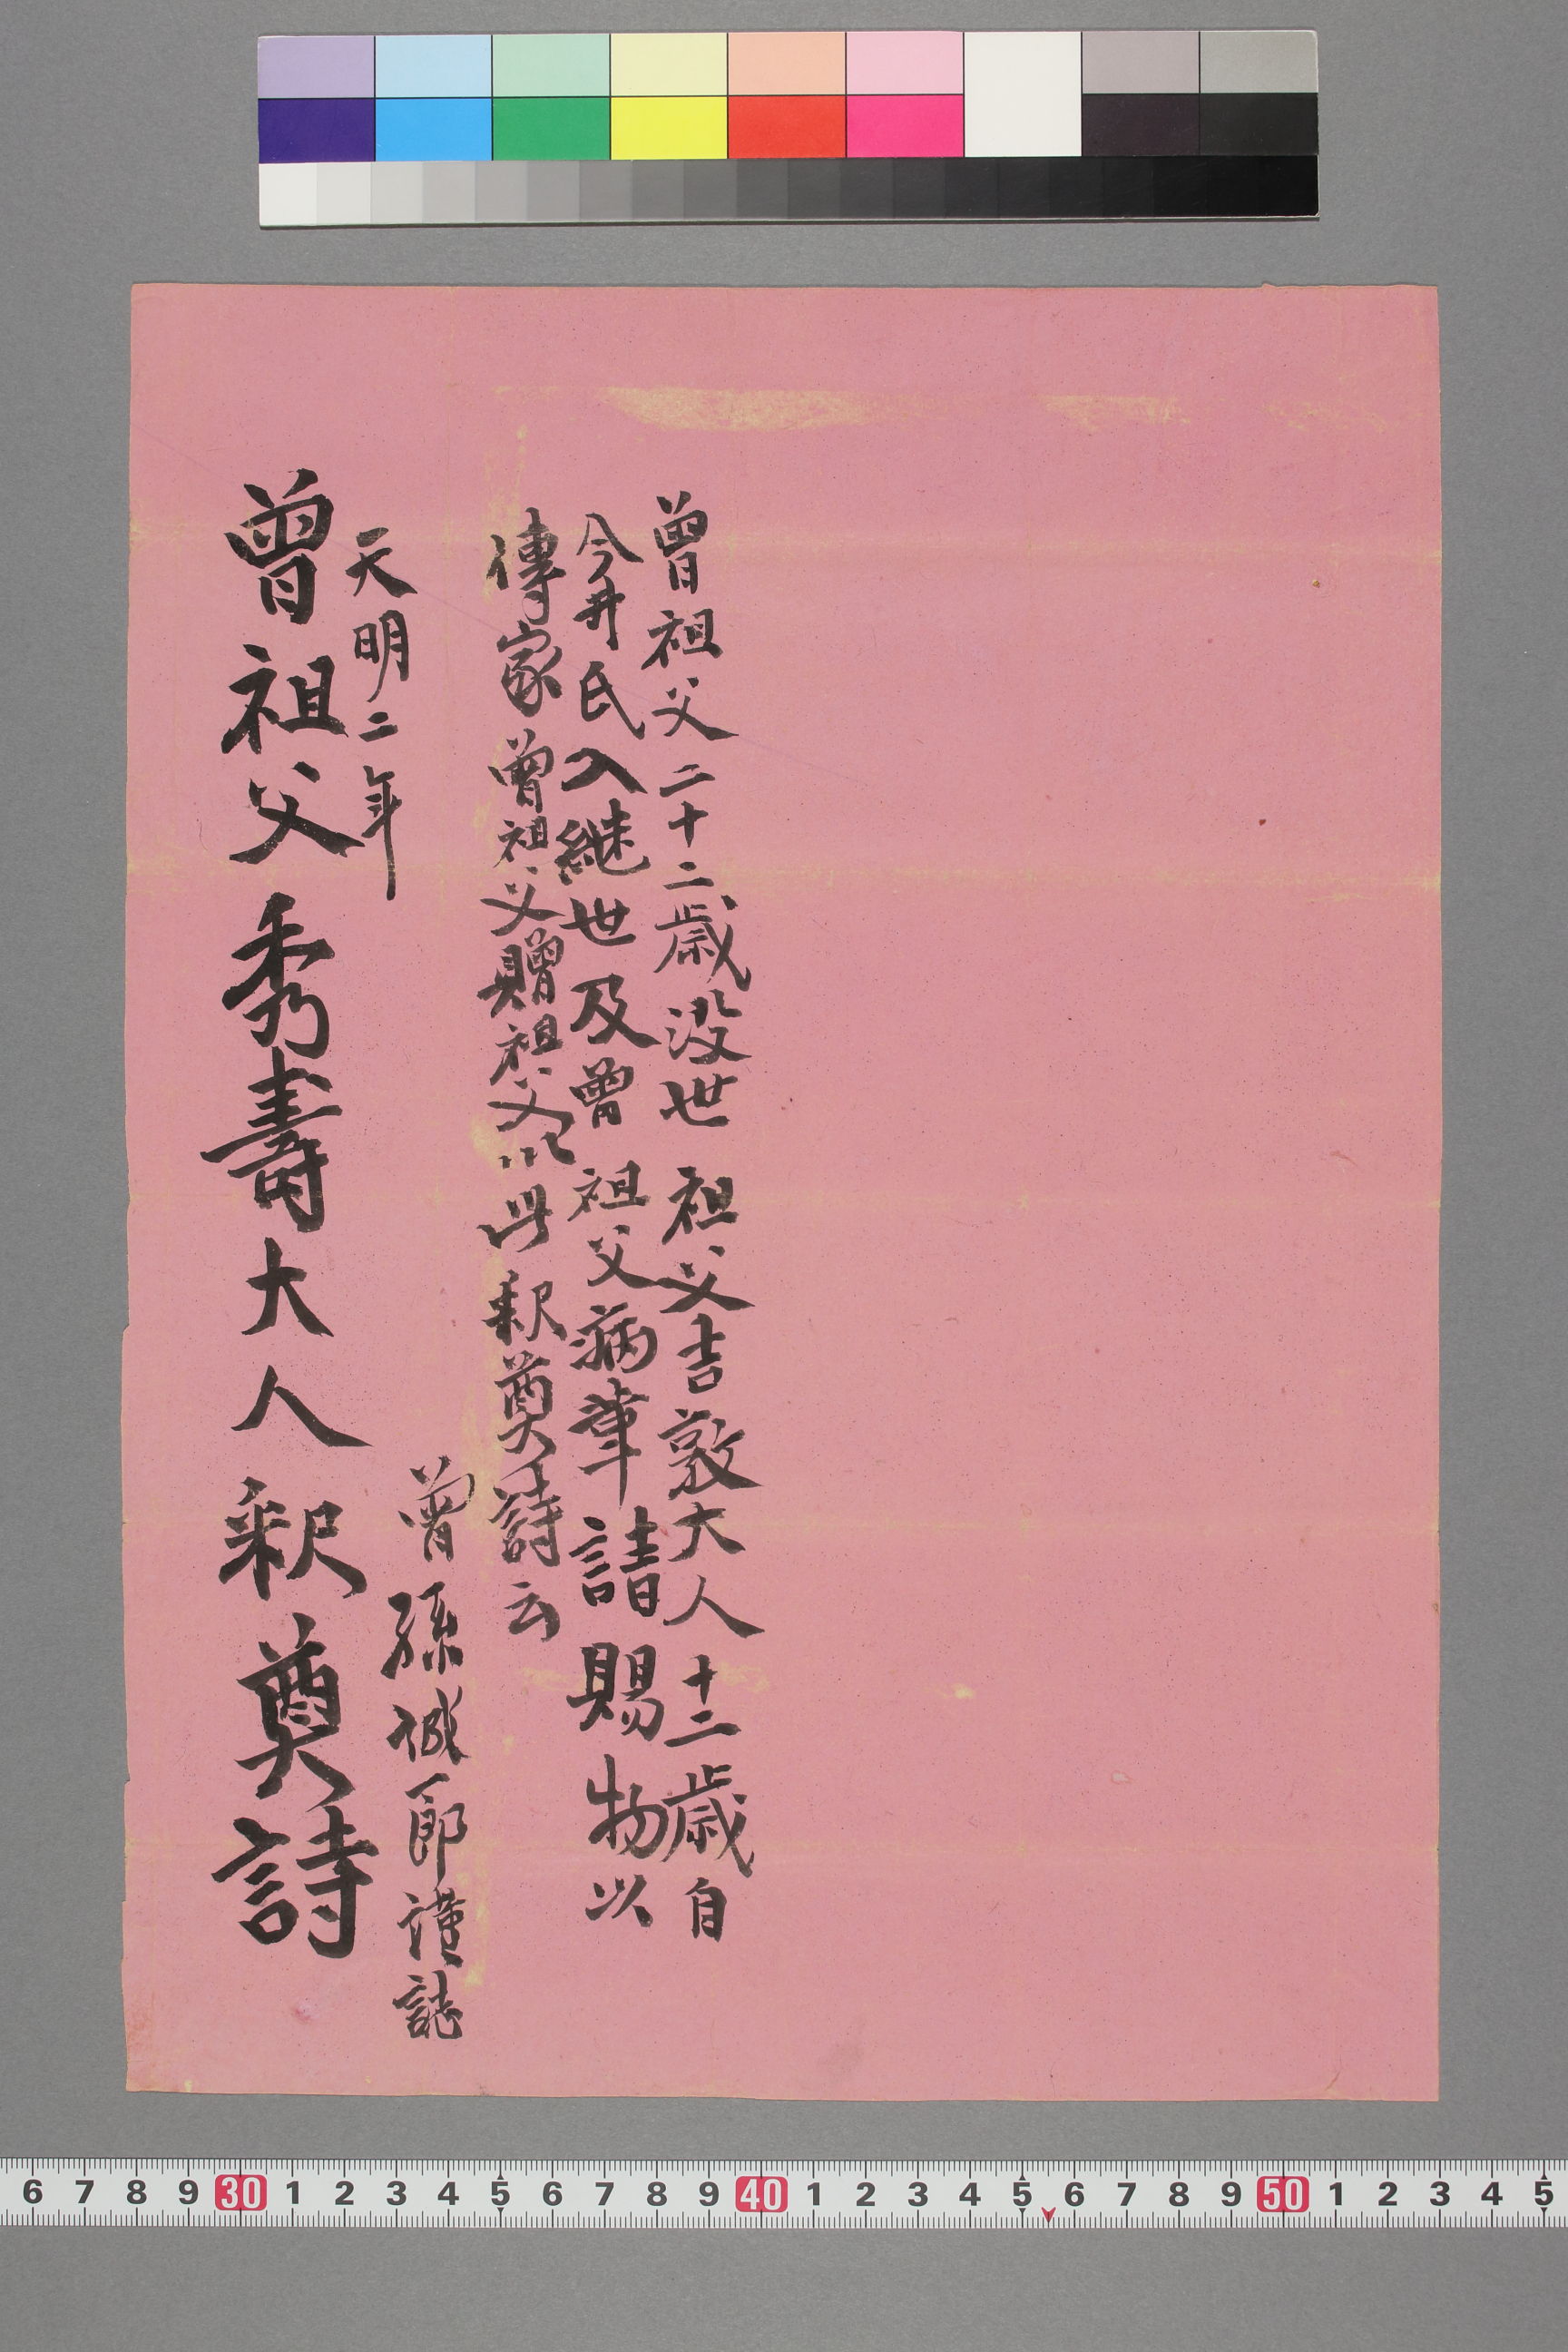 曽祖父二十二歳没世祖父吉敦大人十二歳自
今井氏入継世及曽祖父病筆請賜物以
傳家曽祖父贈祖父以此釈奠詩云
曽孫誠一郎謹誌
天明二年
曽祖父秀壽大人釈奠詩
6 7 8 9 30 1 2 3 4 5 6 7 8 9 40 1 2 3 4 5 6 7 8 9 50 1 2 3 4 5